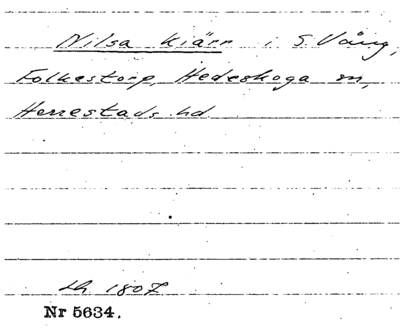 Nilsa Kiärr i S. Vång,
Folkestorp, Hedeskoga sn,
Herrestads hd
Lh 1807
Nr 5634.